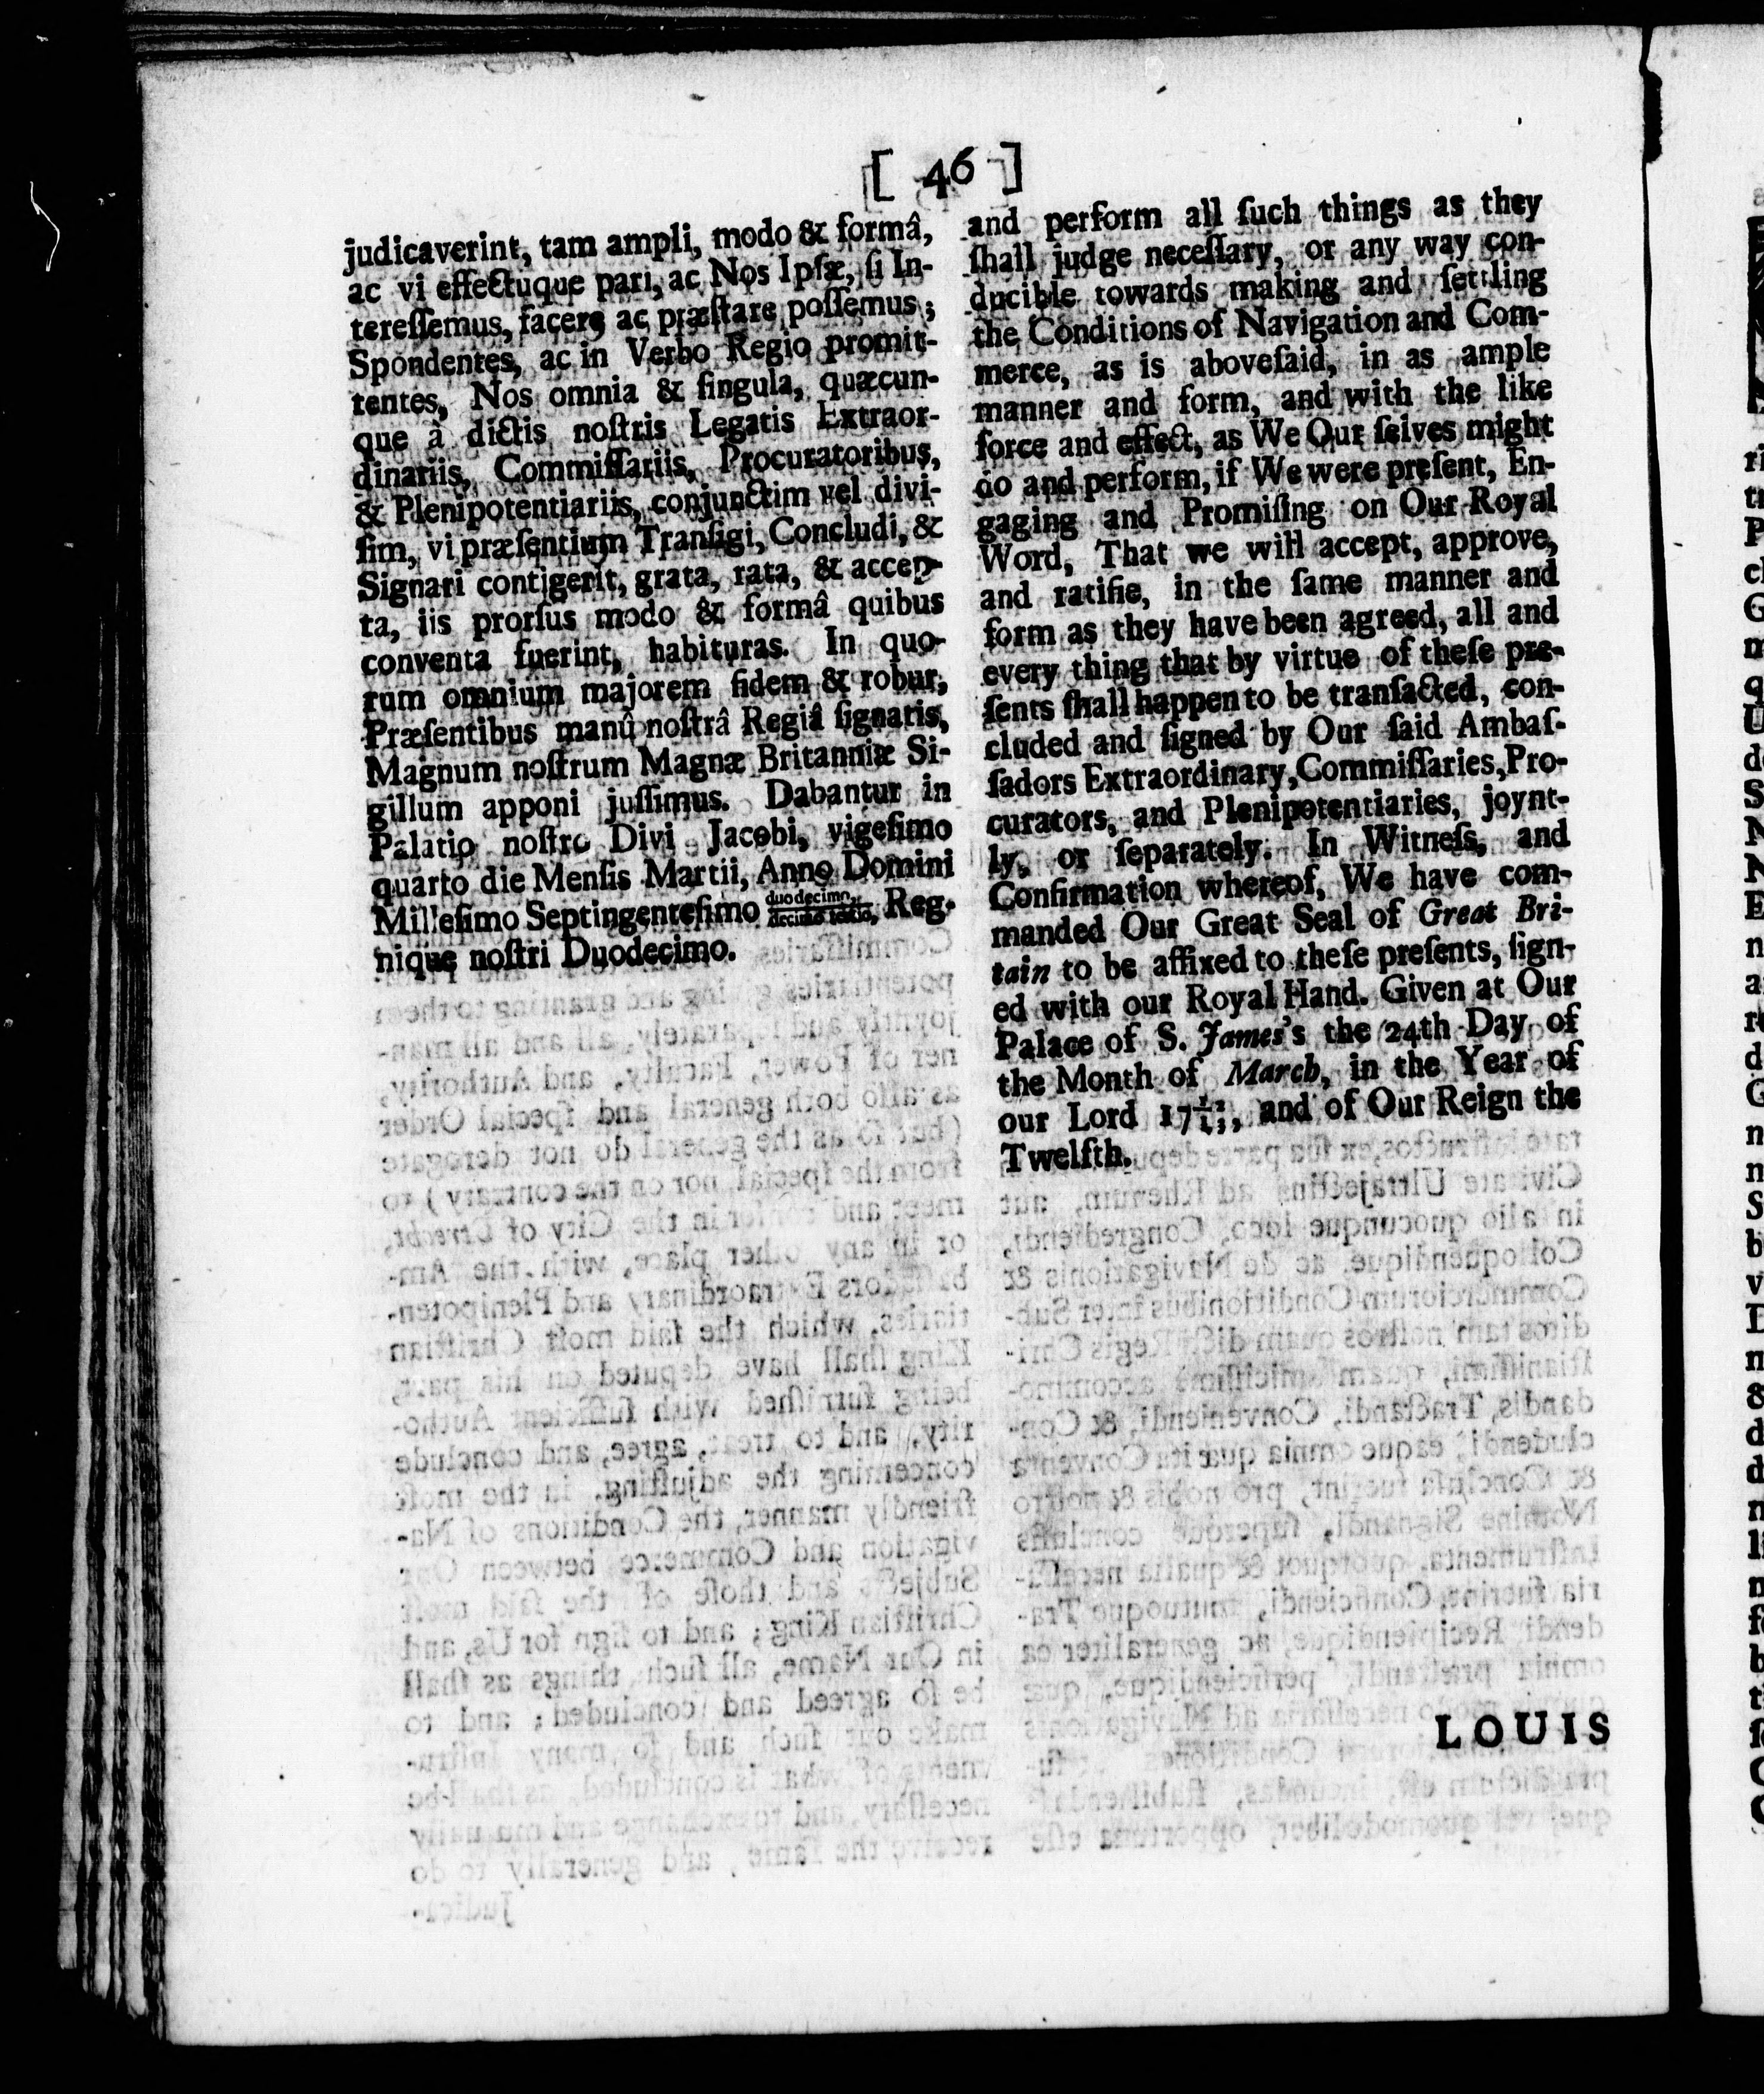 [ 46 ]
judicaverint, tam ampli, modo & formâ,
ac vi effectuque pari, ac Nos Ipſæ, ſi In-
tereſſemus, facere ac præſtare poſſemus;
Spondentes, ac in Verbo Regio promit-
tentes, Nos omnia & ſingula, quæcun-
que à dictis noſtris Legatis Extraor-
dinariis, Commiſſariis, Procuratoribus,
& Plenipotentiariis, conjunctim vel divi-
ſim, vi præſentium Tranſigi, Concludi, &
Signari contigerit, grata, rata, & accep-
ta, iis prorſus modo & formâ quibus
conventa fuerint, habituras. In quo-
rum omnium majorem fidem & robur,
Præſentibus manû noſtrâ Regiâ ſignatis,
Magnum noſtrum Magnæ Britanniæ Si-
gillum apponi juſſimus. Dabantur in
Palatio noſtro Divi Jacobi, vigeſimo
quarto die Menſis Martii, Anno Domini
Milleſimo Septingenteſimo duodecimo/decimo tertio, Reg-
nique noſtri Duodecimo.
and perform all ſuch things as they
ſhall judge neceſſary, or any way con-
ducible towards making and ſettling
the Conditions of Navigation and Com-
merce, as is aboveſaid, in as ample
manner and form, and with the like
force and effect, as We Our ſelves might
do and perform, if We were preſent, En-
gaging and Promiſing on Our Royal
Word, That we will accept, approve,
and ratifie, in the ſame manner and
form as they have been agreed, all and
every thing that by virtue of theſe pre-
ſents ſhall happen to be tranſacted, con-
cluded and ſigned by Our ſaid Ambaſ-
ſadors Extraordinary, Commiſſaries, Pro-
curators, and Plenipotentiaries, joynt-
ly, or ſeparately. In Witneſs, and
Confirmation whereof, We have com-
manded Our Great Seal of Great Bri-
tain to be affixed to theſe preſents, ſign-
ed with our Royal Hand. Given at Our
Palace of S. James's the 24th Day of
the Month of March, in the Year of
our Lord 17 12/13, and of Our Reign the
Twelfth.
LOUIS